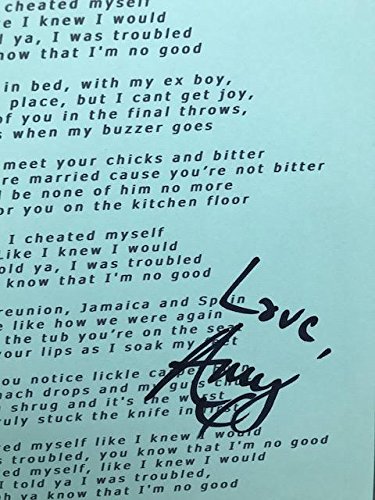 cheated myself
ke I knew I would
ld ya, I was troubled
now that I'm no good
in bed, with my ex boy,
place, but I cant get joy,
of you in the final throws,
s when my buzzer goes
meet your chicks and bitter
re married cause you're not bitter
be none of him no more
or you on the kitchen floor
I cheated myself
Like I knew I would
told ya, I was troubled
know that I'm no good
reunion, Jamaica and Spain
e like how we were again
the tub you're on the sea
your lips as I soak my feet
you notice lickle carpet
ach drops and my guts
shrug and it's the worst
ruly stuck the knife in first
ted myself like I knew I would
as troubled, you know that I'm no good
ted myself, like I knew I would
I told ya I was troubled,
h ya know that I'm no good
Love,
Amy